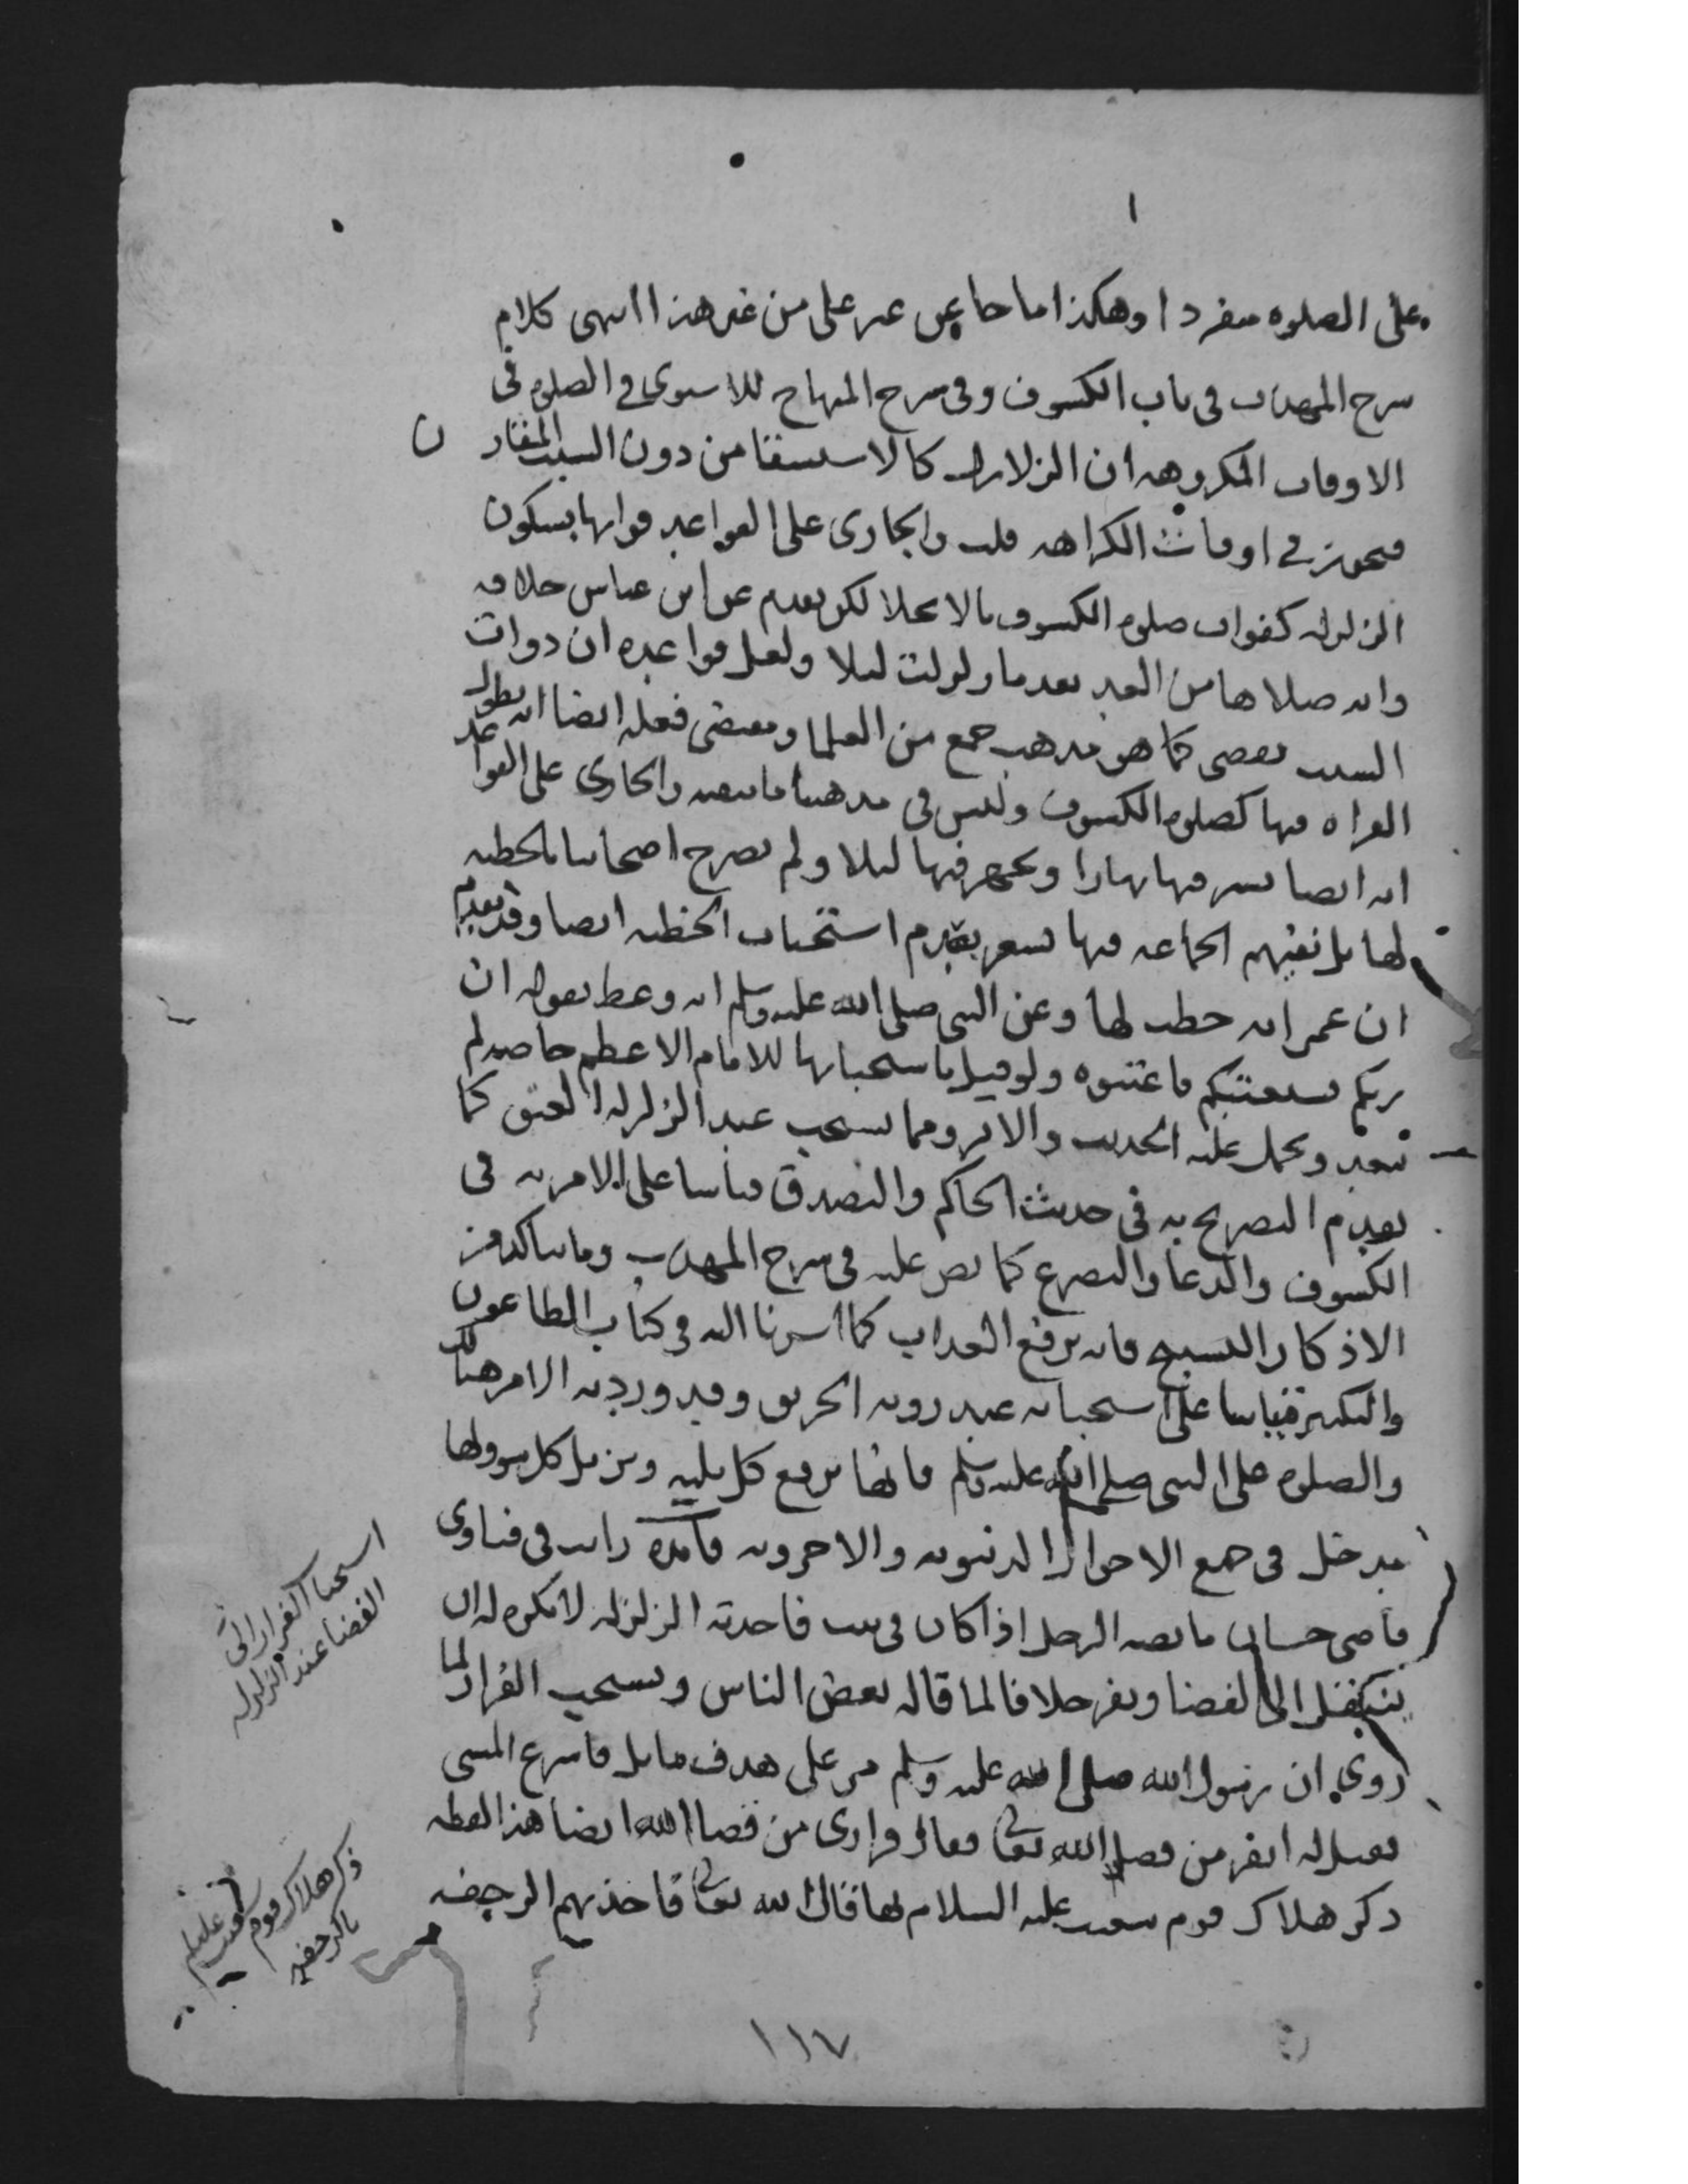 على الصلوه منفردا وهكذا ما جا عن غير على من غير هذا انتهى كلام
شرح المهذب فى باب الكسوف وفى شرح المنهاج للاسنوى فى الصلوه فى
الاوقات المكروهه ان الزلازل كالاستسقا من دون السبب المقارن
فتجوز فى اوقات الكراهه قلت والجارى على القواعد فواتها بسكون
الزلزله كفوات صلوه الكسوف بالانجلا لكن تقدم عن ابن عباس خلافه
وانه صلاها من الغد بعد ما زلزلت ليلا ولعل قواعده ان ذوات
السبب تقضى كما هو مذهب جمع من العلما ومقتضى فعله ايضا انه يطول
القراه فيها كصلوه الكسوف وليس فى مذهبنا ما يتعينه والجارى على القواعد
انه ايضا يسر فيها نهارا ويجهر فيها ليلا ولم يصرح اصحابنا بالخطبه
لها بل نفيهم الجماعه فيها يشعر بعدم استحباب الخطبه ايضا وقد تقدم
ان عمر انه خطب لها وعن النبى صلى الله عليه وسلم انه وعظ بقوله ان
ربكم يستعتبكم فاعتبوه ولو قيل باستحبابها للامام الاعظم خاصه لم
يبعد ويحمل عليه الحديث والاثر ومما يستحب عند الزلزله العتق كما
تقدم التصريح به فى حديث الحاكم والتصدق قياسا على الامر به فى
الكسوف والدعا والتضرع كما نص عليه فى شرح المهذب ومما يتاكد من
الاذكار التسبيح فانه يرفع العذاب كما اشرنا اليه فى كتاب الطاعون
والتكبير قياسا على استحبابه عند رويه الحريق وقد ورد به الامر هناك
والصلوه على النبى صلى الله عليه وسلم فانها ترفع كل بليه وتزيل كل سوء ولها
مدخل فى جميع الاحوال الدنيويه والاخرويه فائده رايت فى فتاوى
قاضى خان ما نصه الرجل اذا كان فى بيت فاخذته الزلزله لا يكره له ان
ينتقل الى الفضا ويفر خلافا لما قاله بعض الناس ويستحب الفرار لما
روى ان رسول الله صلى الله عليه وسلم مر على هدف مايل فاسرع المشى
فقيل له اتفر من قضا الله تعالى فقال فرارى من قضا الله ايضا هذا لفظه
ذكر هلاك قوم شعيب عليه السلام بها قال الله تعالى فاخذتهم الرجفه
استحباب الفرار الى
الفضا عند الزلزله
ذكر هلاك قوم
شعيب عليه السلام
بالرجفه
١١٧